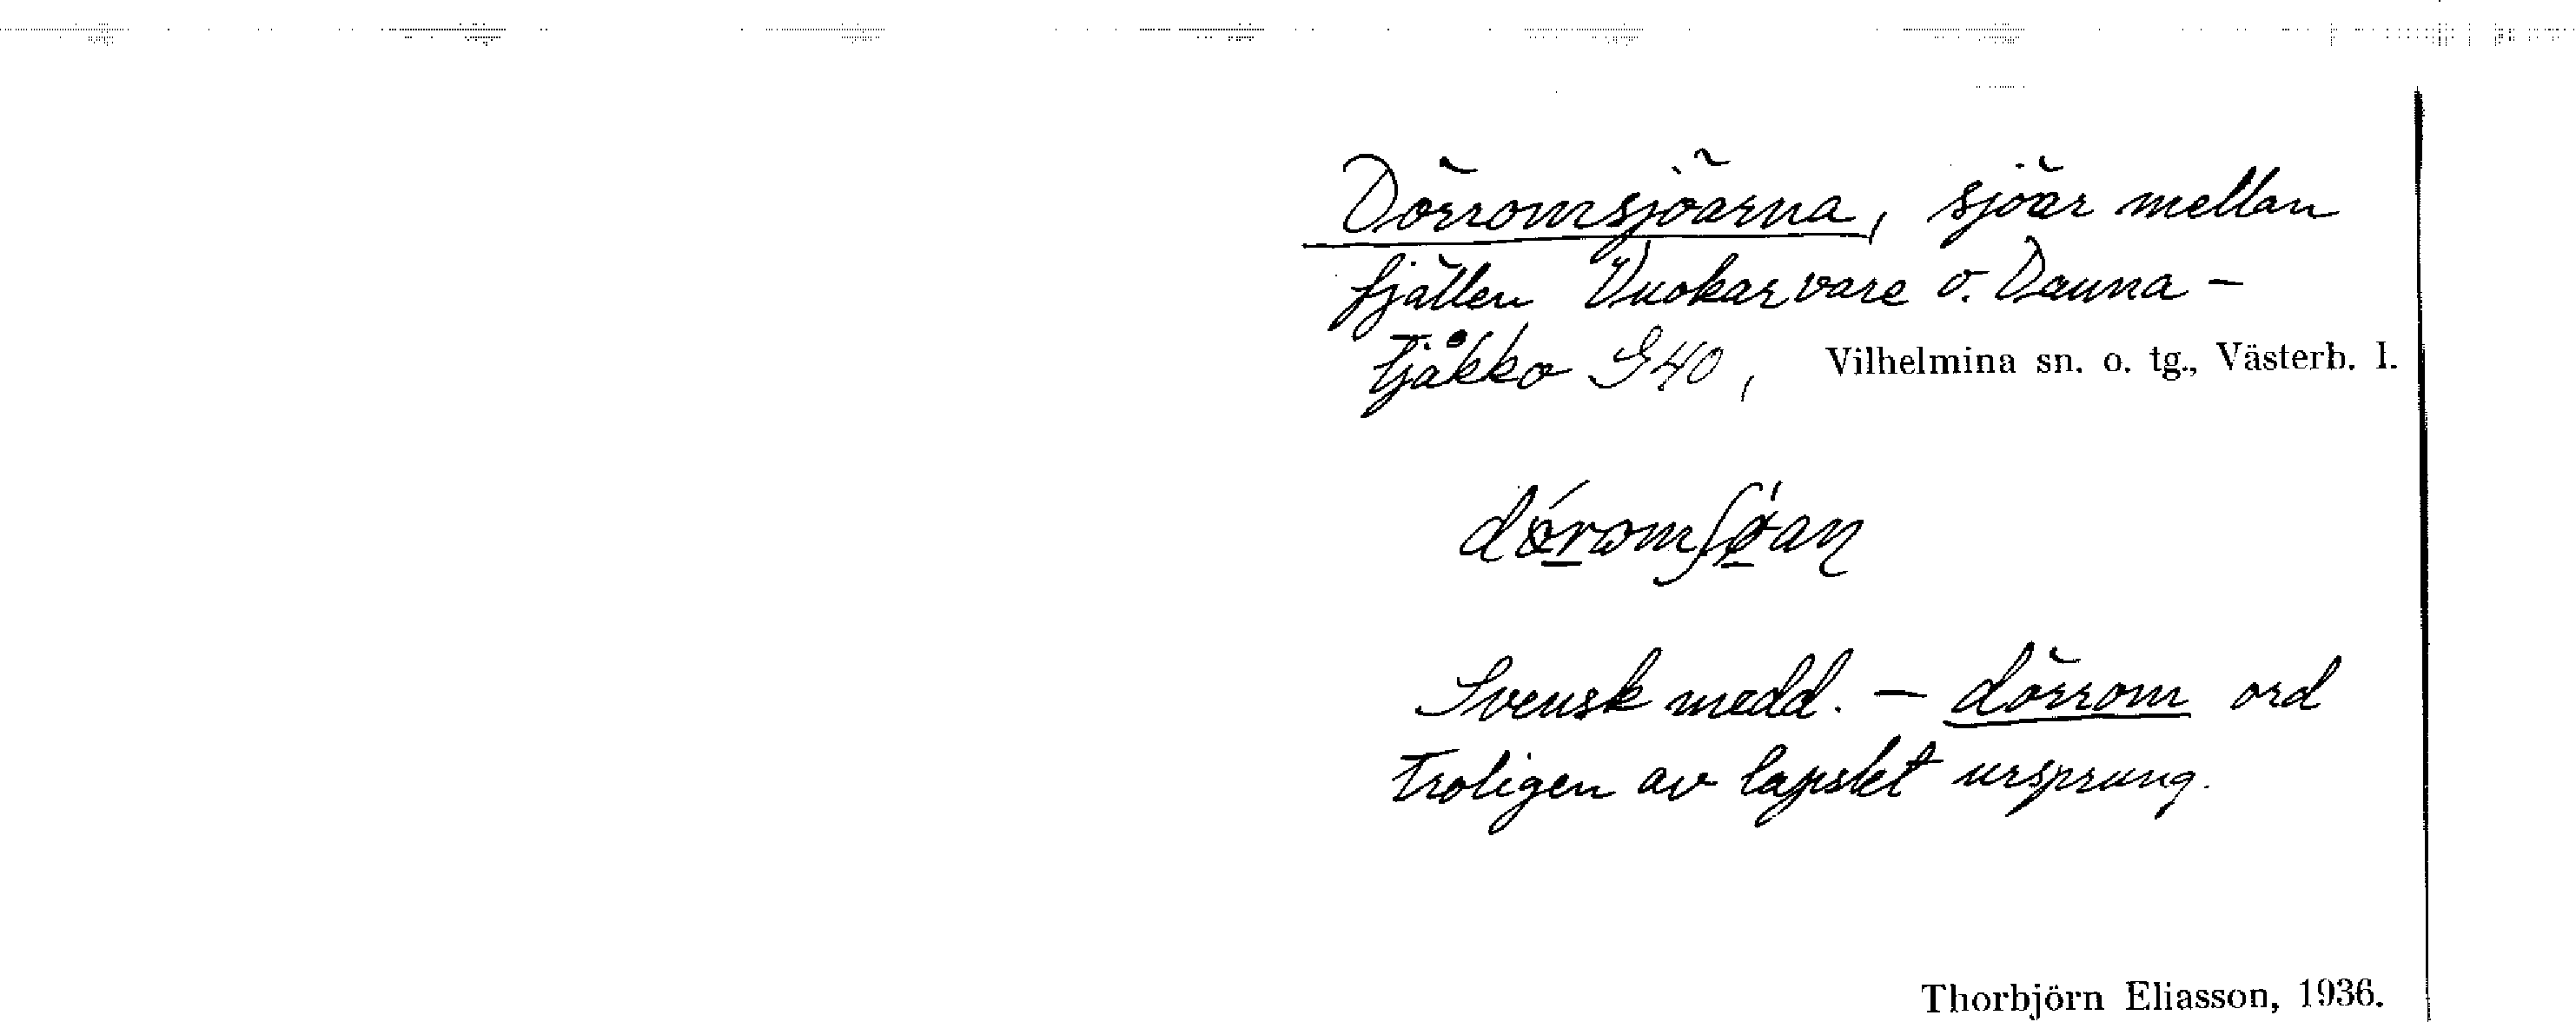 Dörromsjöarna, sjöar mellan
fjällen Vuokarvare o. Dauna-
tjåkko G40, Vilhelmina sn. o. tg., Västerb. l.
Svensk medd. — dörrom ord
troligen av lapskt ursprung.
Thorbjörn Eliasson, 1936.